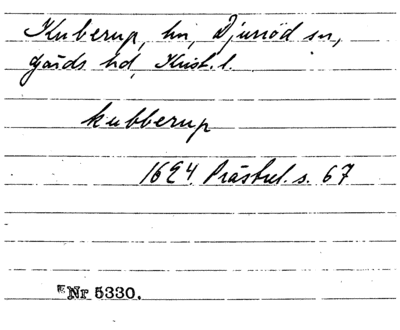 Kuberup, hn, Djurröd sn,
Gärds hd, Krist. l.
kubberup
1624 Prästrel. s. 67
Nr 5330.